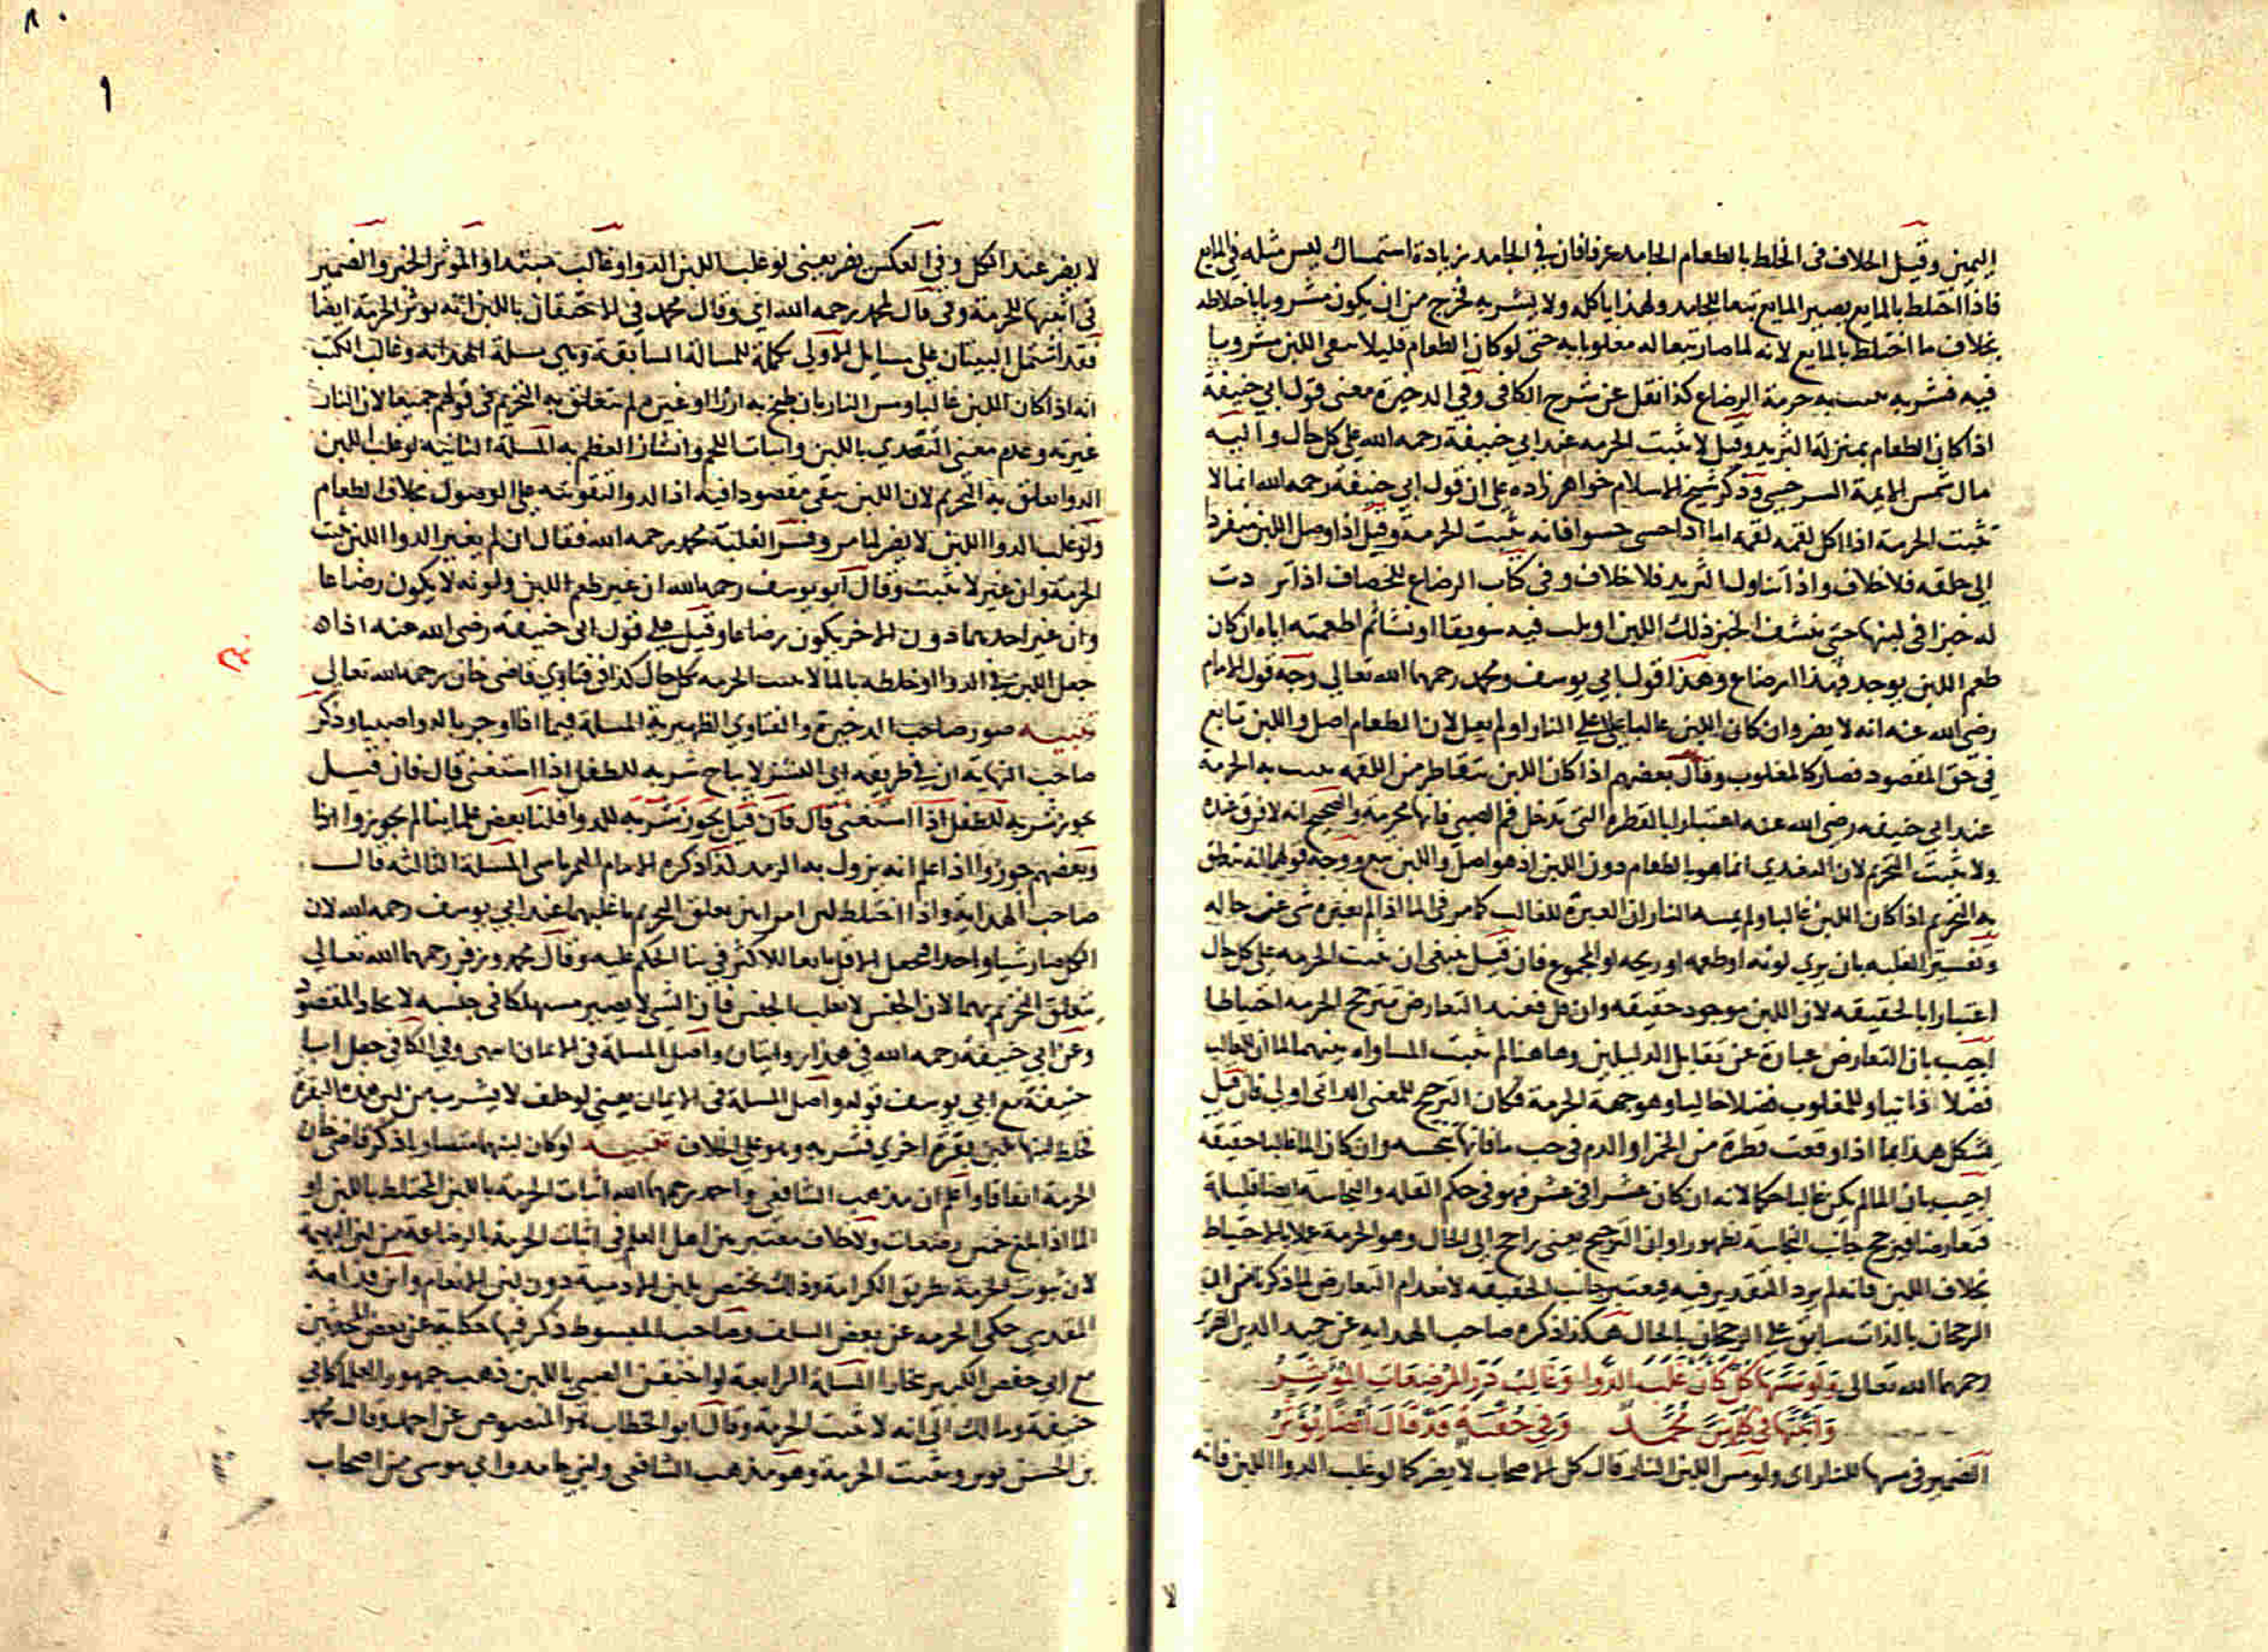 اليمين وقيل الخلاف فى الخلط بالطعام الجامد عرفا فان في الجامد زيادة استمساك ليس مثله في المايع
فاذا اختلط بالمايع يصير المايع تبعا للجامد ولهذا ياكله ولا يشربه فخرج من ان يكون مشروبا باختلاطه
بخلاف ما اختلط بالمايع لانه لما صار تبعا له مغلوبا به حتى لو كان الطعام قليلا بقى اللبن مشروبا
فيه فشربه يثبت به حرمة الرضاع كذا نقل عن شرح الكافى وفي الدخيرة معنى قول ابي حنيفة
اذا كان الطعام بمنزلة الثريد وقيل لا تثبت الحرمه عند ابي حنيفة رحمه الله على كل حال واليه
مال شمس الايمة السرخسي وذكر شيخ الاسلام خواهر زاده على ان قول ابي حنيفة رحمه الله انما لا
تثبت الحرمة اذا اكل لقمه لقمه اما اذا حسى حسوا فانه تثبت الحرمة وقيل اذا وصل اللبن منفردا
الى حلقه فلا خلاف واذا تناول الثريد فلا خلاف وفى كتاب الرضاع للخصاف اذا ثردت
له خبزا فى لبنها حتى ينشف الخبز ذلك اللبن او بلت فيه سويقا او نشا ثم اطعمته اياه ان كان
طعم اللبن يوجد فهذا رضاع وهذا قول ابي يوسف ومحمد رحمهما الله تعالى وجه قول الامام
رضى الله عنه انه لا يضر وان كان اللبن غالبا على النار او لم يصل لان الطعام اصل واللبن تابع
في حق المقصود فصار كالمغلوب وقال بعضهم اذا كان اللبن يتقاطر من اللقمه يثبت به الحرمة
عند ابى حنيفه رضى الله عنه اعتبارا بالقطره التى تدخل فم الصبى فانها محرمة والصحيح انه لا فرق عنده
ولا يثبت التحريم لان التغدي انما هو بالطعام دون اللبن اذ هو اصل واللبن تبع ووجه قولهما انه يتعلق
به التحريم اذا كان اللبن غالبا ولم يمسه النار ان العبرة للغالب كما مر فى الما اذا لم يغيره شى عن حاله
وتفسير الغلبه بان يرى لونه او طعمه او ريحه او المجموع فان قيل ينبغى ان تثبت الحرمه على كل حال
اعتبارا بالحقيقه لان اللبن موجود حقيقه وان قل فعند التعارض تترجح الحرمه احتياطا
اجيب بان التعارض عبارة عن تقابل الدليلين وها هنا لم تثبت المساواه بينهما لما ان للغالب
فضلا ذاتيا وللمغلوب فضلا حاليا وهو جهة الحرمة فكان الترجيح للمعنى الذاتى اولى فان قيل
يشكل هذا بما اذا وقعت قطرة من الخمر او الدم فى جب ما فانها تنجسه وان كان الما غالبا حقيقة
اجيب بان الما لم يكن غالبا حكما لانه ان كان عشرا فى عشر فهو فى حكم القله والنجاسة ايضا قليلة
فتعارضا فيرجح جانب النجاسة
بخلاف اللبن فانه لم يرد التقدير فيه فيعتبر جانب الحقيقه لانعدام التعارض لما ذكرنا من ان
الرجحان بالذات سابق على الرجحان بالحال هكذا ذكره صاحب الهدايه عن حميد الدين الضرير
رحمهما الله تعالى ولو مسها كل كان غلب الدوا وغالب در المرضعات المؤثر
محمد وفي حقنة قد قال ايضا يؤثر
الضمير فى مسها للنار اى ولو مس اللبن النار قال كل الاصحاب لا يضر كما لو غلب الدوا اللبن فانه
لا يضر عند الكل وفي العكس يضر يعنى لو غلب اللبن الدوا وغالب مبتدا والمؤثر الخبر والضمير
فى اثبتها للحرمة وفى قال لمحمد رحمه الله اي وقال محمد فى الاحتقان باللبن انه يؤثر الحرمة ايضا
فقد اشتمل البيتان على مسايل الاولى تكملة للمسالة السابقة وهى مسلة الهدايه وغالب الكتب
انه اذا كان اللبن غالبا ومس النار بان طبخ به ارزا او غيره لم يتعلق به التحريم فى قولهم جميعا لان النار
غيرته وعدم معنى التغدي باللبن وانبات اللحم وانشاز العظم به المسلة الثانية لو غلب اللبن
الدوا تعلق به التحريم لان اللبن يبقى مقصودا فيه اذ الدوا لتقويته على الوصول بخلاف الطعام
ولو غلب الدوا اللبن لا يضر لما مر وفسر الغلبة محمد رحمه الله فقال ان لم يغير الدوا اللبن تثبت
الحرمة وان غير لا تثبت وقال ابو يوسف رحمه الله ان غير طعم اللبن ولونه لا يكون رضاعا
وان غير احدهما دون الاخر يكون رضاعا وقيل على قول ابى حنيفة رضى الله عنه اذا
جعل اللبن في الدوا او خلطه بالما لا تثبت الحرمه بكل حال كذا فى فتاوي قاضى خان رحمه الله تعالى
تنبيه صور صاحب الدخيرة والفتاوي الظهيرية المسلة فيما اذا اوجر بالدوا صبيا وذكر
صاحب النهاية ان في طريقه ابى اليسر لا يباح شربه للطفل اذا استغنى قال فان قيل
يجوز شربه للطفل اذا استغنى قال فان قيل يجوز شربه للدوا قلنا بعض علماينا لم يجوزوا هذا
وبعضهم جوزوا اذا علم انه يزول به الرمد كذا ذكره الامام التمرتاشى المسلة الثالثه قال
صاحب الهداية واذا اختلط لبن امراتين تعلق التحريم باغلبهما عند ابي يوسف رحمه الله لان
الكل صار شيا واحدا فجعل الاقل تابعا للاكثر في بنا الحكم عليه وقال محمد وزفر رحمهما الله تعالى
يتعلق التحريم بهما لان الجنس لا يغلب الجنس فان الشى لا يصير مستهلكا فى جنسه لاتحاد المقصود
وعن ابي حنيفة رحمه الله في هذا روايتان واصل المسلة فى الايمان انتهى وفي الكافى جعل ابا
حنيفة مع ابي يوسف قوله واصل المسلة فى الايمان يعنى لو حلف لا يشرب من لبن هذه البقرة
فخلط لبنها بلبن بقرة اخري فشربه وهو على الخلاف تنبيه لو كان لبنهما متساويا ذكر قاضى خان
الحرمة اتفاقا واعلم ان مذهب الشافعى واحمد رحمهما الله اثبات الحرمة باللبن المختلط باللبن او
الما اذا بلغ خمس رضعات ولا خلاف معتبر بين اهل العلم فى اثبات الحرمة بالرضاعة من لبن البهيمة
لان ثبوت الحرمة بطريق الكرامة وذلك يختص بلبن الادمية دون لبن الانعام وابن قدامة
المقدسى حكى الحرمه عن بعض السلف وصاحب المبسوط ذكر فيها حكاية عن بعض المحدثين
مع ابي حفص الكبير ببخارا المسلة الرابعة لو احتقن الصبى باللبن ذهب جمهور العلما كابي
حنيفة ومالك الى انه لا تثبت الحرمة وقال ابو الخطاب هو المنصوص عن احمد وقال محمد
بن الحسن تؤثر وتثبت الحرمة وهو مذهب الشافعى وابن حامد وابي موسى من اصحاب